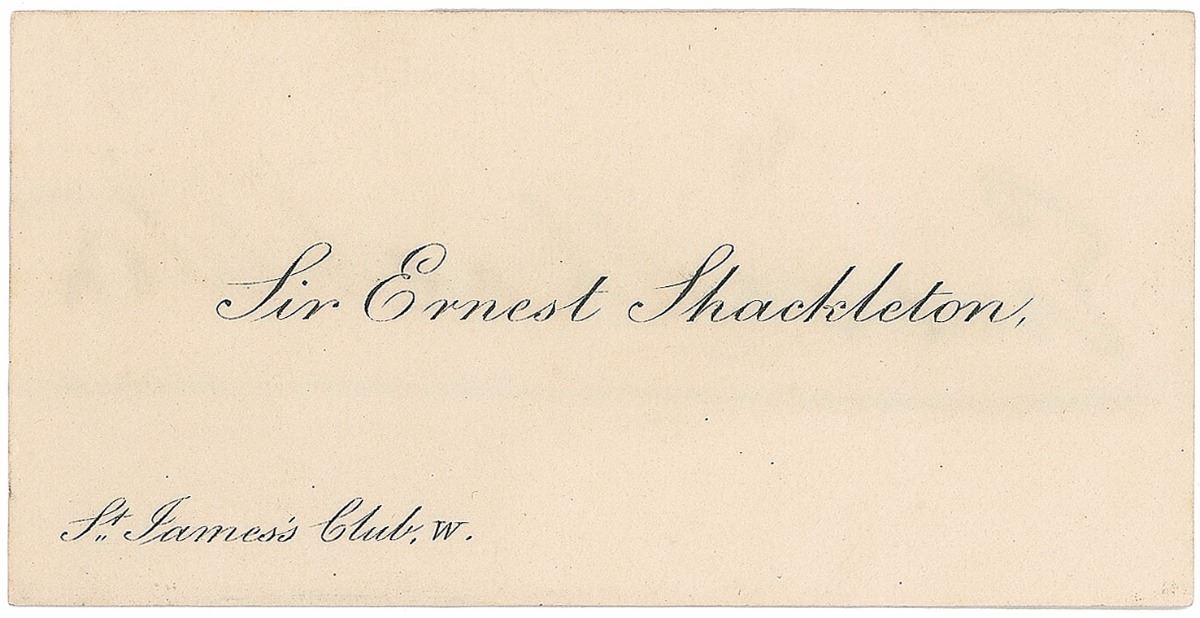 Sir Ernest Shackleton,
St. James's Club, W.